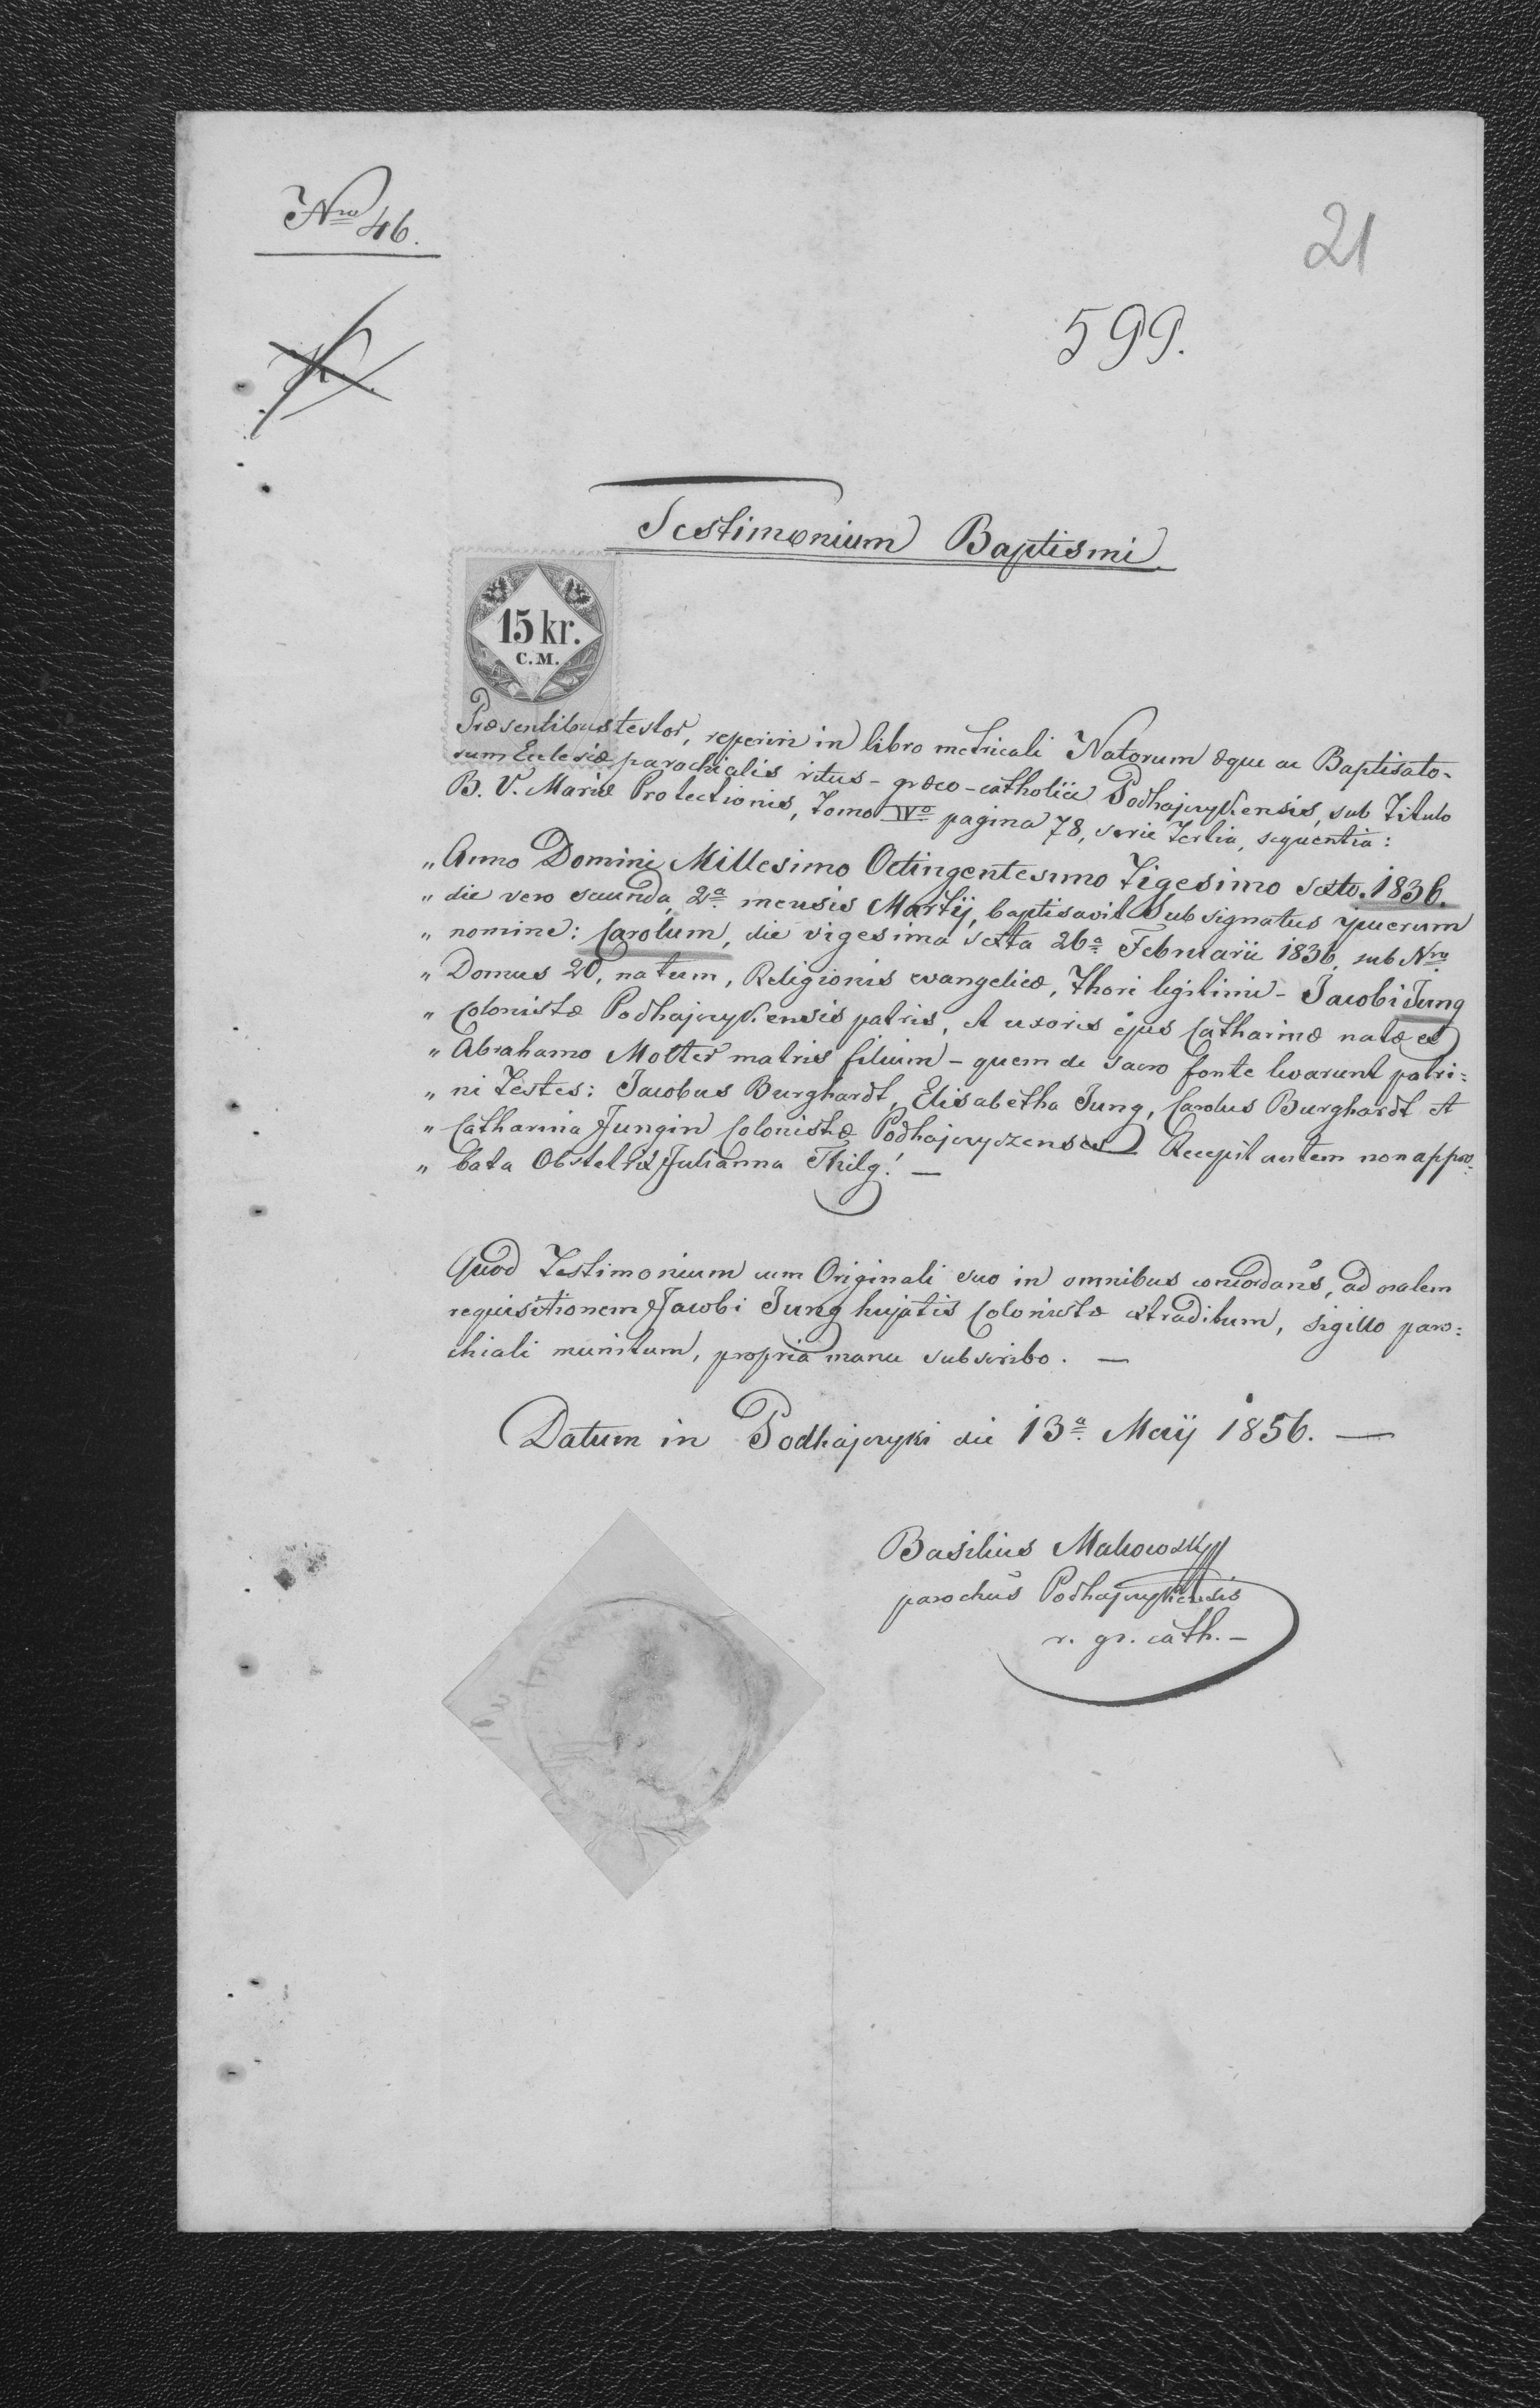 Nro 46.
21
599.
Testimonium Baptismi.
15 kr.
C.M.
Præsentibus testor, reperiri in libro metricali Natorum æque ac Baptisato-
rum Ecclesiæ parochialis ritus-græco-catholici Podhajczykiensis, sub Titulo
B. V. Mariæ Protectionis, Tomo IVo pagina 78, serie Tertia, sequentia:
„ Anno Domini Millesimo Octingentesimo Tigesimo sexto. 1836.
„ die vero secunda, 2a mensis Martÿ, baptisavit Subsignatus puerum
„ nomine: Carolum, die vigesima sexta 26a Februarii 1836, sub Nro
„ Domus 20, natum, Religionis evangelicæ, Thori legitimi - Jacobi Jung
„ Colonistæ Podhajczykiensis patris, et uxoris ejus Catharinæ natæ ex
„ Abrahamo Molter matris filium - quem de sacro fonte levarunt patri:
„ ni Testes: Jacobus Burghardt, Elisabetha Jung, Carolus Burghardt et
„ Catharina Jungin Colonistæ Podhajczyczenses. Recepit autem non appro:
„ bata Obstetrix Julianna Thilg! —
Quod Testimonium cum Originali suo in omnibus concordans, ad oralem
requisitionem Jacobi Jung hujatis Colonistæ extraditum, sigillo paro:
chiali munitum, propria manu subscribo. —
Datum in Podhajczyki die 13a Maÿ 1856. —
Basilius Makowsky
parochus Podhajczykiensis
r. gr. cath. —